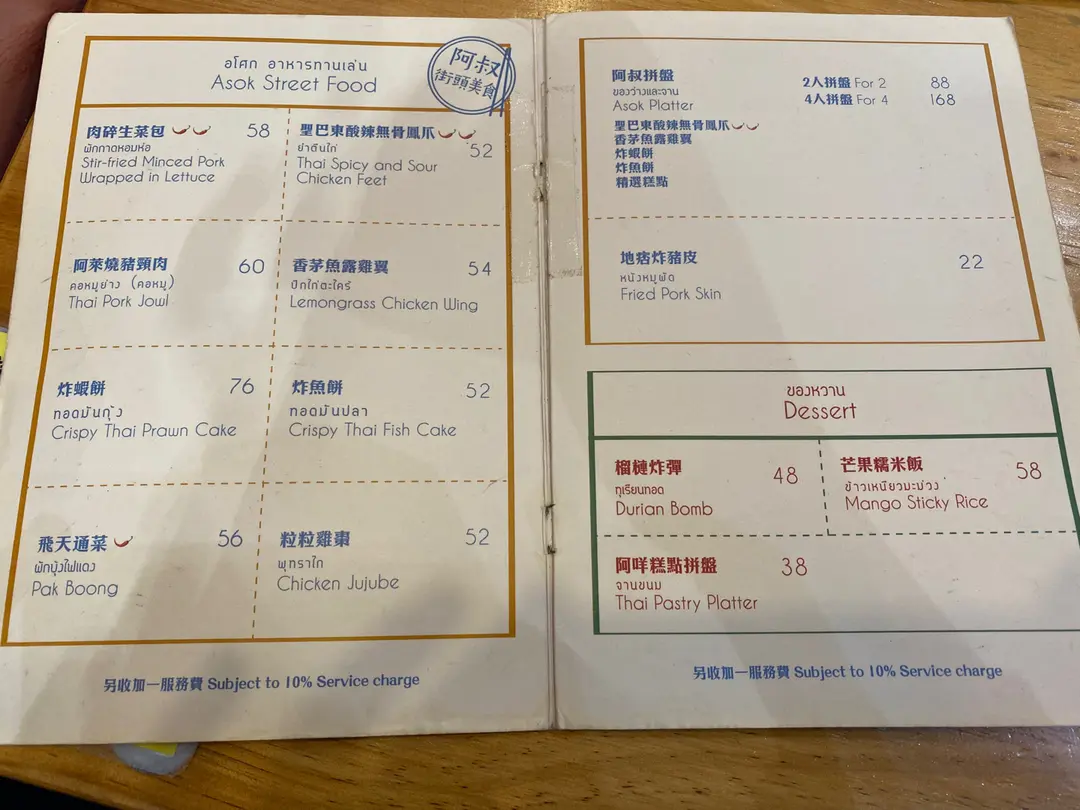 อโศก อาหารทานเล่น
Asok Street Food
阿叔
街頭美食
肉碎生菜包 58
ผักกาดหอมห่อ
Stir-fried Minced Pork
Wrapped in Lettuce
聖巴東酸辣無骨鳳爪 52
ยำตีนไก่
Thai Spicy and Sour
Chicken Feet
阿萊燒豬頸肉 60
คอหมูย่าง (คอหมู)
Thai Pork Jowl
香茅魚露雞翼 54
ปีกไก่ตะไคร้
Lemongrass Chicken Wing
炸蝦餅 76
ทอดมันกุ้ง
Crispy Thai Prawn Cake
炸魚餅 52
ทอดมันปลา
Crispy Thai Fish Cake
飛天通菜 56
ผักบุ้งไฟแดง
Pak Boong
粒粒雞棗 52
พุทราไก่
Chicken Jujube
另收加一服務費 Subject to 10% Service charge
阿叔拼盤 2人拼盤 For 2 88
ของว่างและจาน 4人拼盤 For 4 168
Asok Platter
聖巴東酸辣無骨鳳爪
香茅魚露雞翼
炸蝦餅
炸魚餅
精選糕點
地痞炸豬皮 22
หนังหมูผัด
Fried Pork Skin
ของหวาน
Dessert
榴槤炸彈 48
ทุเรียนทอด
Durian Bomb
芒果糯米飯 58
ข้าวเหนียวมะม่วง
Mango Sticky Rice
阿咩糕點拼盤 38
จานขนม
Thai Pastry Platter
另收加一服務費 Subject to 10% Service charge